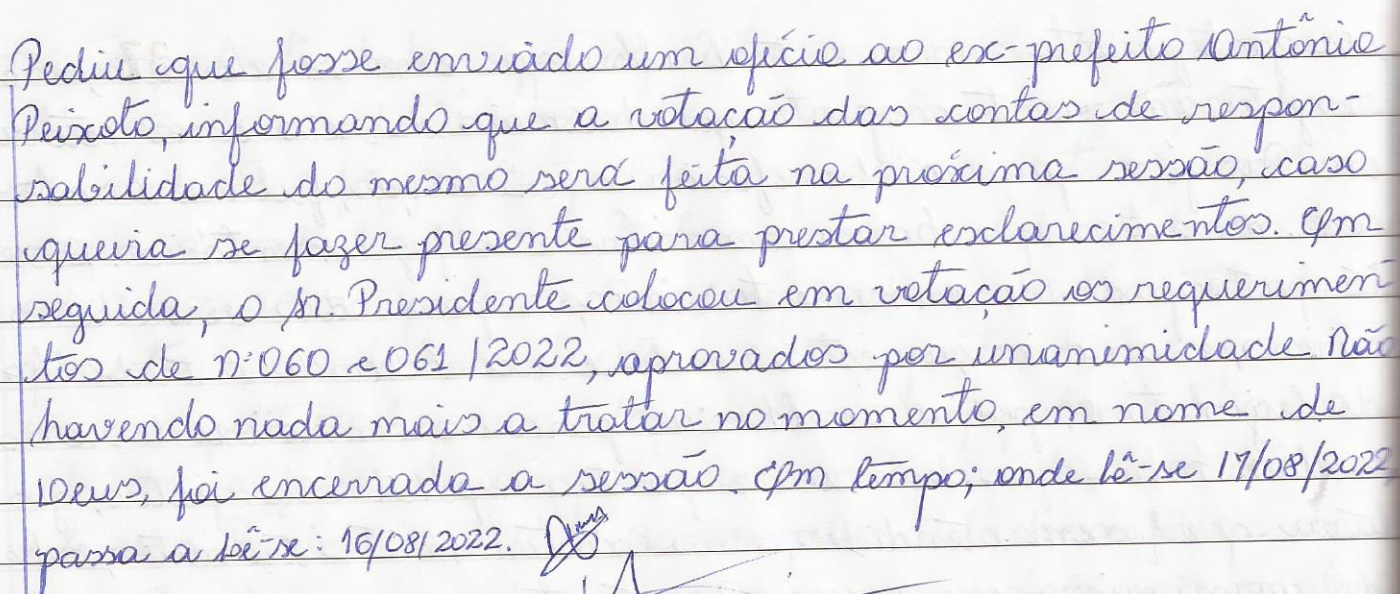 Pediu que fosse enviado um ofício ao ex-prefeito Antônio
Peixoto, informando que a votação das contas de respon-
sabilidade do mesmo será feita, na próxima sessão, caso
queria se fazer presente para prestar esclarecimentos. Em
seguida, o Sr. Presidente colocou em votação os requerimen-
tos de nº 060 e 061/2022, aprovados por unanimidade Não
havendo nada mais a tratar no momento, em nome de
Deus, foi encerrada a sessão. Em tempo; onde lê-se 17/08/2022
passa a lê-se: 16/08/2022.